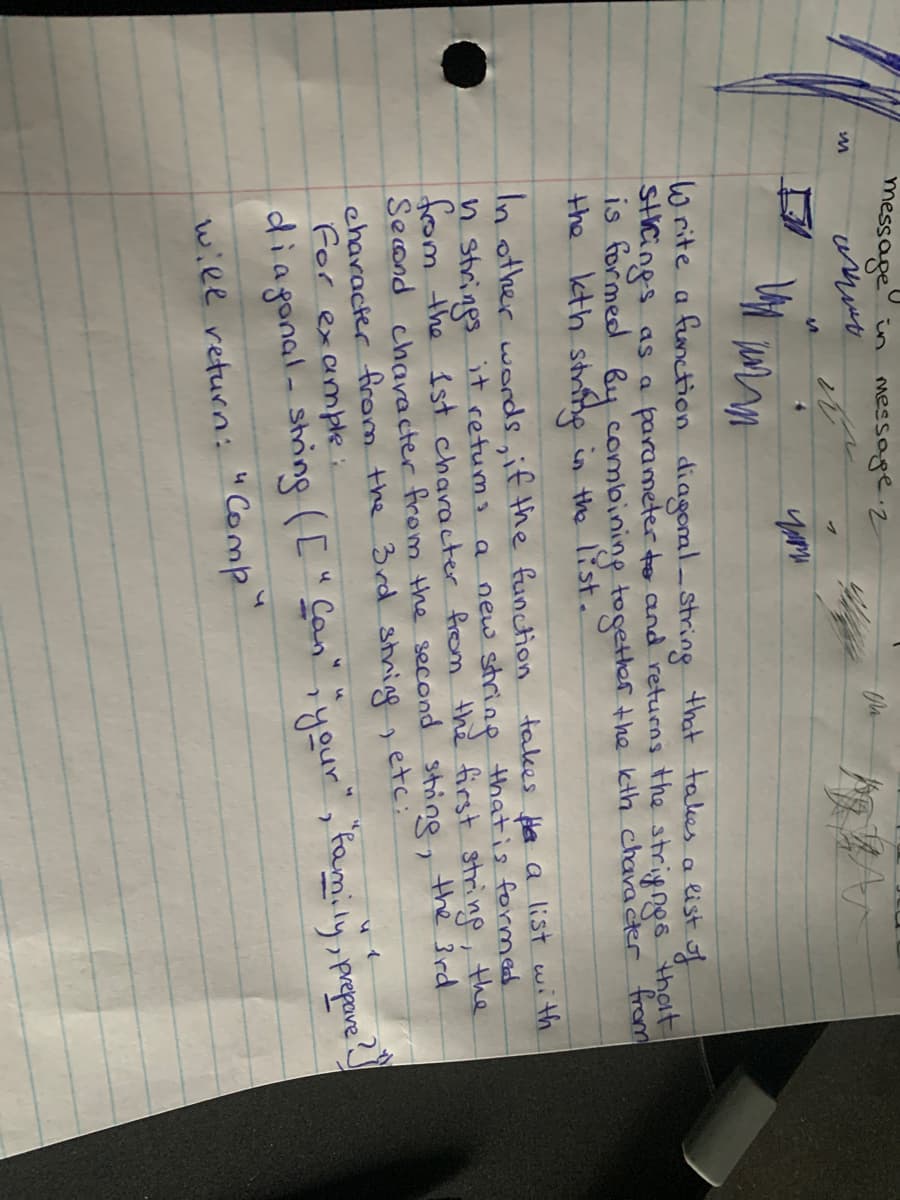 message in message.2
Write a function diagonal_string that takes a list of
strings as a parameter and returns the striyngs that
is formed by combining together the kth character from
the kth string in the list.
In other words, if the function takes a list with
n strings it returns a new string that is formed
from the 1st character from the first string, the
Second character from the second string, the 3rd
character from the 3rd string, etc:
For example:
diagonal-string (["Can", "your", "family, "prepare?"]
will return: "Comp"